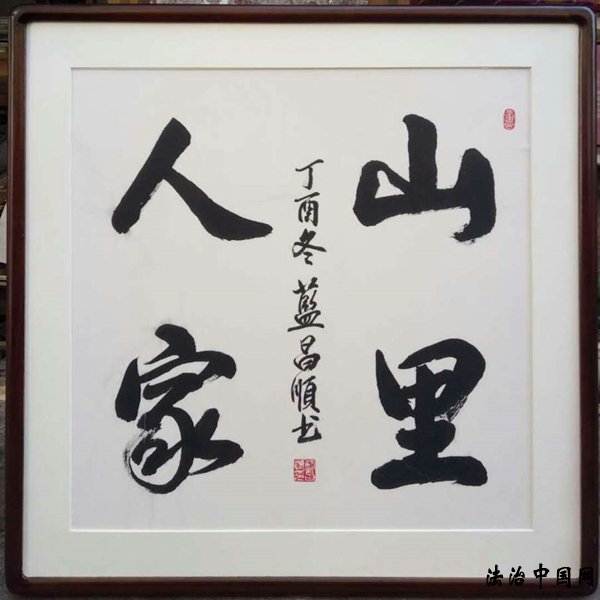 山里
人家
丁酉冬 藍昌順书
法治中国网